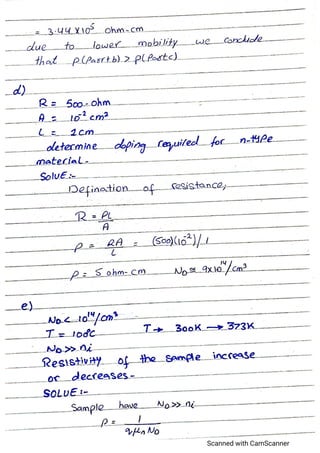 = 3.44 X 10⁵ ohm-cm
due to lower mobility we conclude
that ρ(Part b) > ρ(Part c)
d)
R = 500 ohm
A = 10⁻² cm²
L = 1 cm
determine doping required for n-type
material.
SolvE:-
Defination of resistance,
R = ρL/A
ρ = RA/L = (500)(10⁻²)/1
ρ = 5 ohm-cm N_D ≅ 9x10¹⁴/cm³
e)
N_D < 10¹⁴/cm³
T = 100°C T → 300K → 373K
N_D >> ni
Resistivity of the sample increase
or decreases.
SOLUE:-
Sample have N_D >> ni
ρ = 1/qμn N_D
Scanned with CamScanner